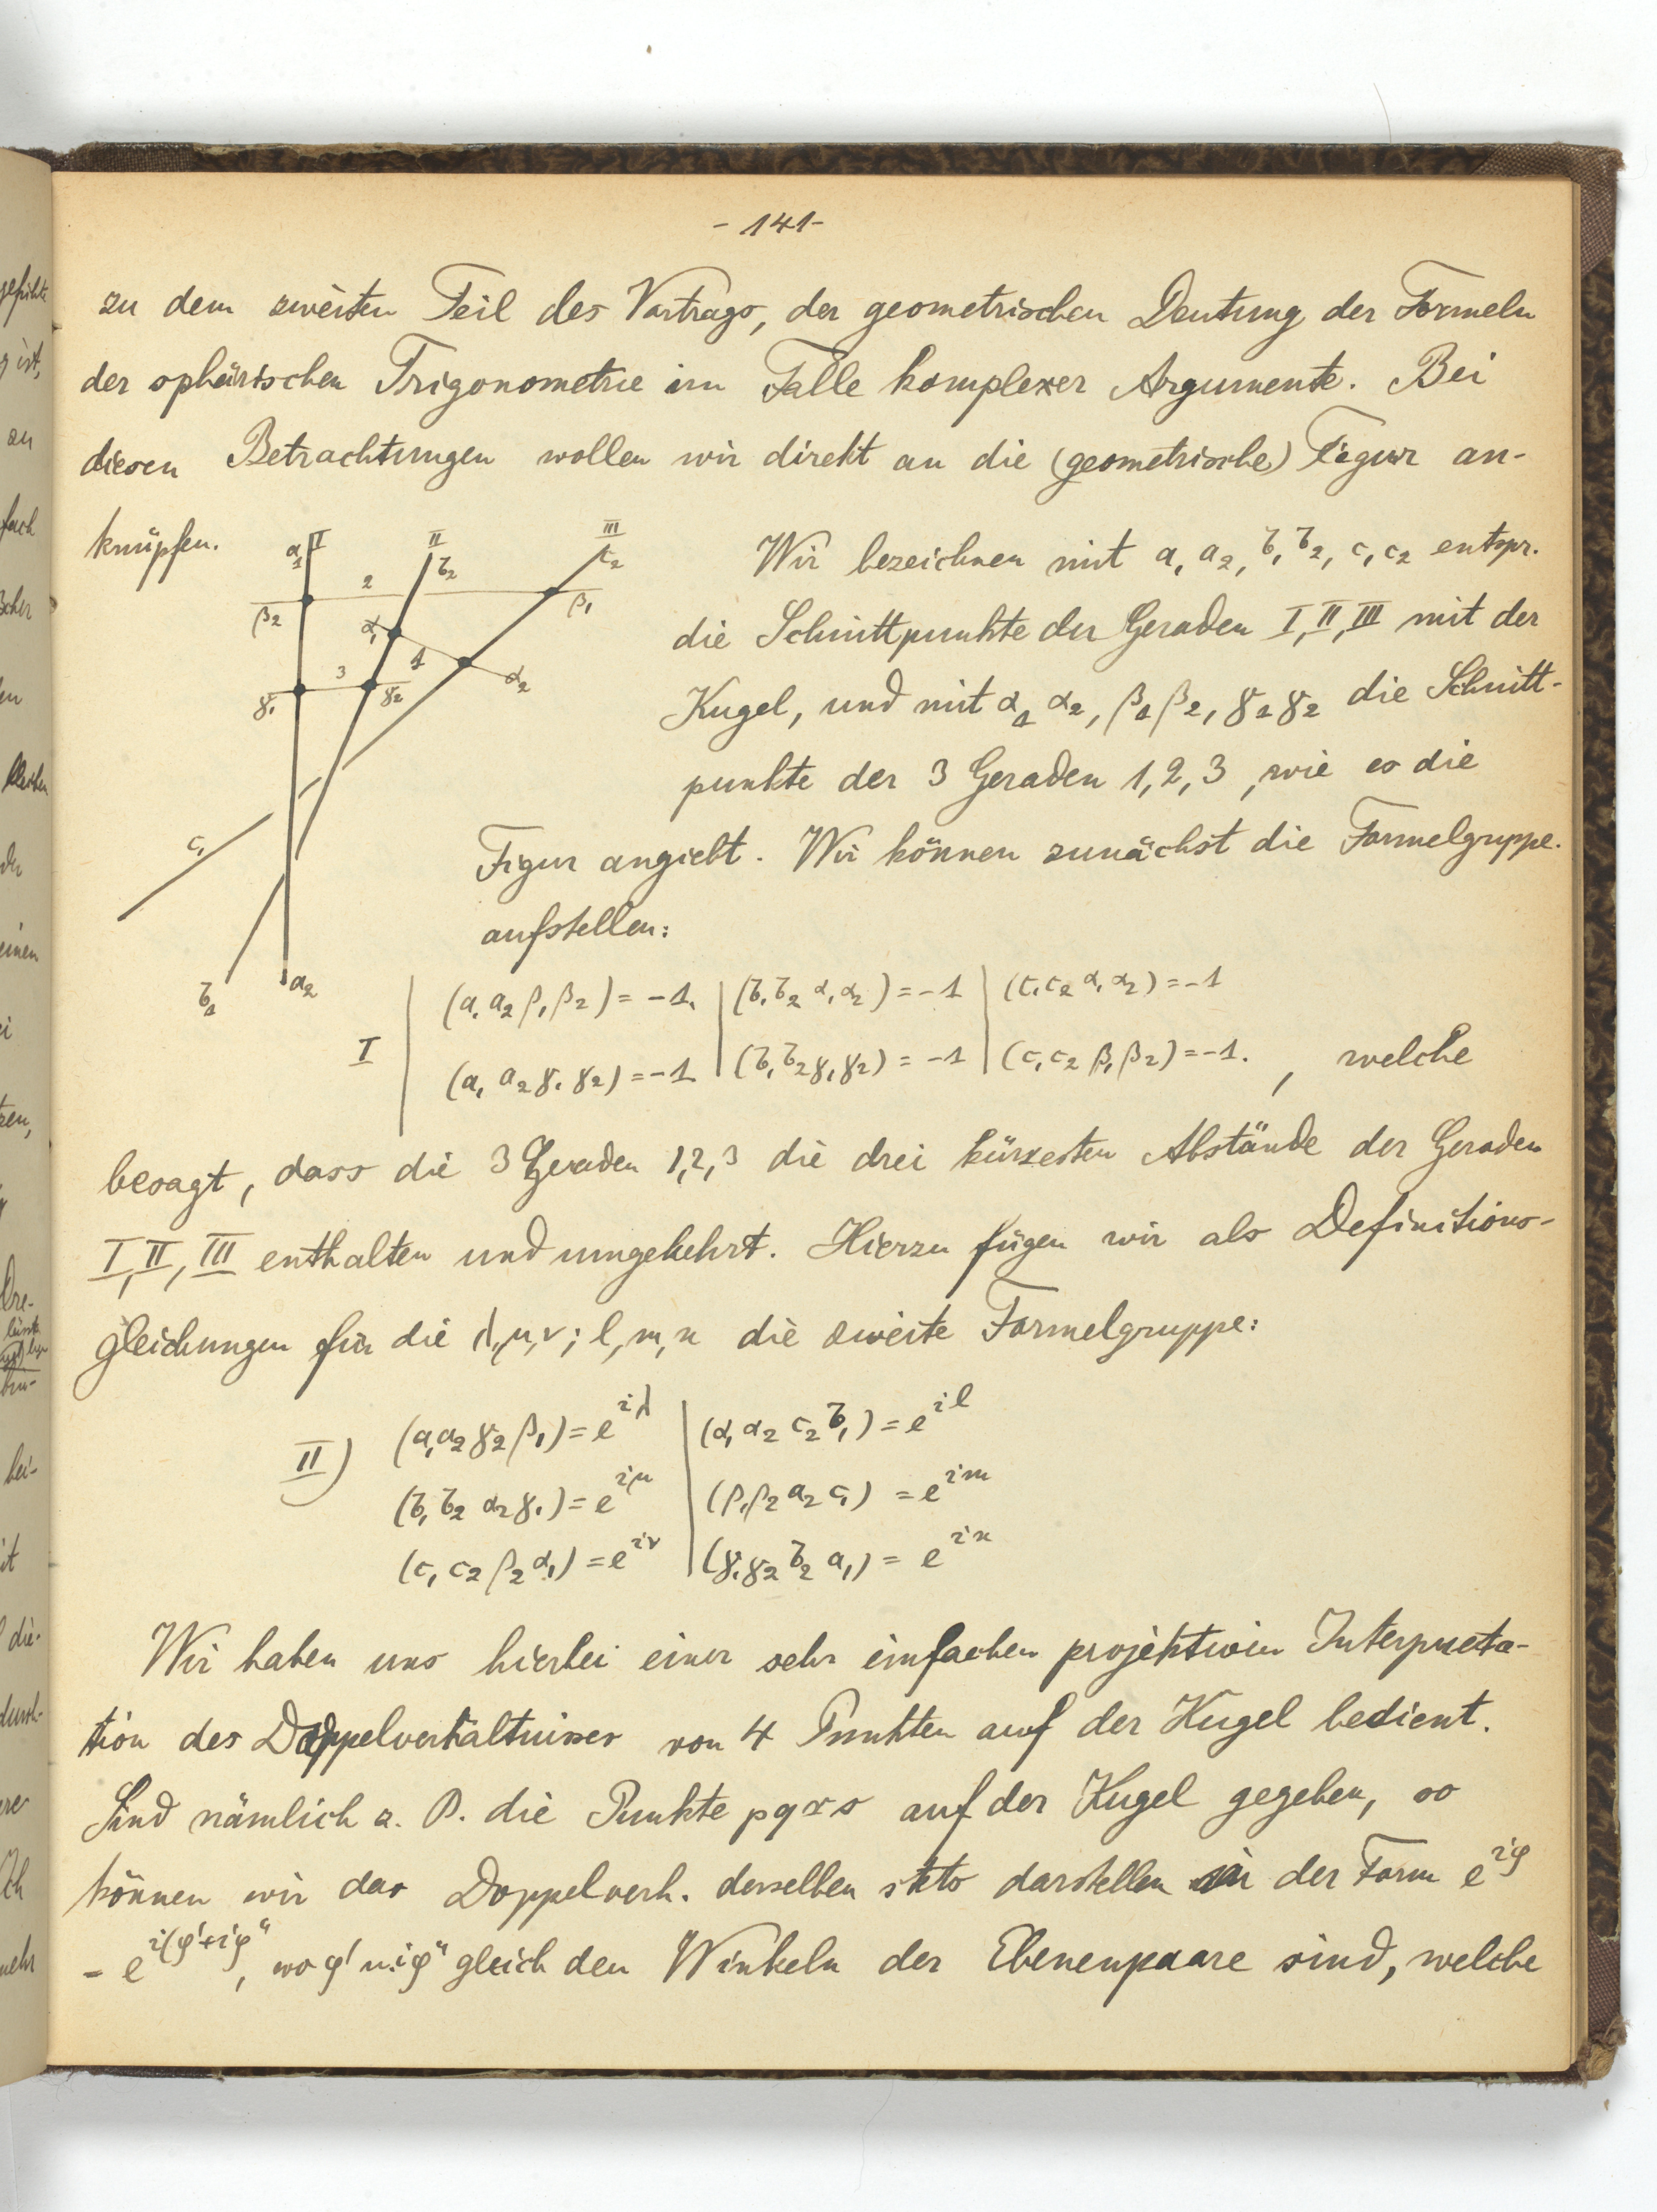 - 141 -
zu dem zweiten Teil des Vortrags, der geometrischen Deutung der Formeln
der sphärischen Trigonometrie im Falle komplexer Argumente. Bei
diesen Betrachtungen wollen wir direkt an die (geometrische) Figur an-
knüpfen.
a₁ I II III
b₂ c₂
2
β₂ β₁
α₁ 1
3 α₂
γ₁ γ₂
c₁
b₁ a₂
Wir bezeichnen mit a₁ a₂, b₁ b₂, c₁ c₂ entspr.
die Schnittpunkte der Geraden I, II, III mit der
Kugel, und mit α₁ α₂, β₁ β₂, γ₁ γ₂ die Schnitt-
punkte der 3 Geraden 1, 2, 3, wie es die
Figur angiebt. Wir können zunächst die Formelgruppe
aufstellen:
(a₁ a₂ β₁ β₂) = -1. | (b₁ b₂ α₁ α₂) = -1 | (c₁ c₂ α₁ α₂) = -1
I (a₁ a₂ γ₁ γ₂) = -1 | (b₁ b₂ γ₁ γ₂) = -1 | (c₁ c₂ β₁ β₂) = -1. , welche
besagt, dass die 3 Geraden 1, 2, 3 die drei kürzesten Abstände der Geraden
I, II, III enthalten und umgekehrt. Hierzu fügen wir als Definitions-
gleichungen für die λ, μ, ν; l, m, n die zweite Formelgruppe:
II) (a₁ a₂ γ₂ β₁) = e^{iλ} | (α₁ α₂ c₂ b₁) = e^{il}
(b₁ b₂ α₂ γ₁) = e^{iμ} | (β₁ β₂ a₂ c₁) = e^{im}
(c₁ c₂ β₂ α₁) = e^{iν} | (γ₁ γ₂ b₂ a₁) = e^{in}
Wir haben uns hierbei einer sehr einfachen projektiven Interpreta-
tion des Doppelverhältnisses von 4 Punkten auf der Kugel bedient.
Sind nämlich z. B. die Punkte p q r s auf der Kugel gegeben, so
können wir das Doppelverh. derselben stets darstellen in der Form e^{iφ}
= e^{i(φ'+iφ''}, wo φ' u. iφ'' gleich den Winkeln der Ebenenpaare sind, welche